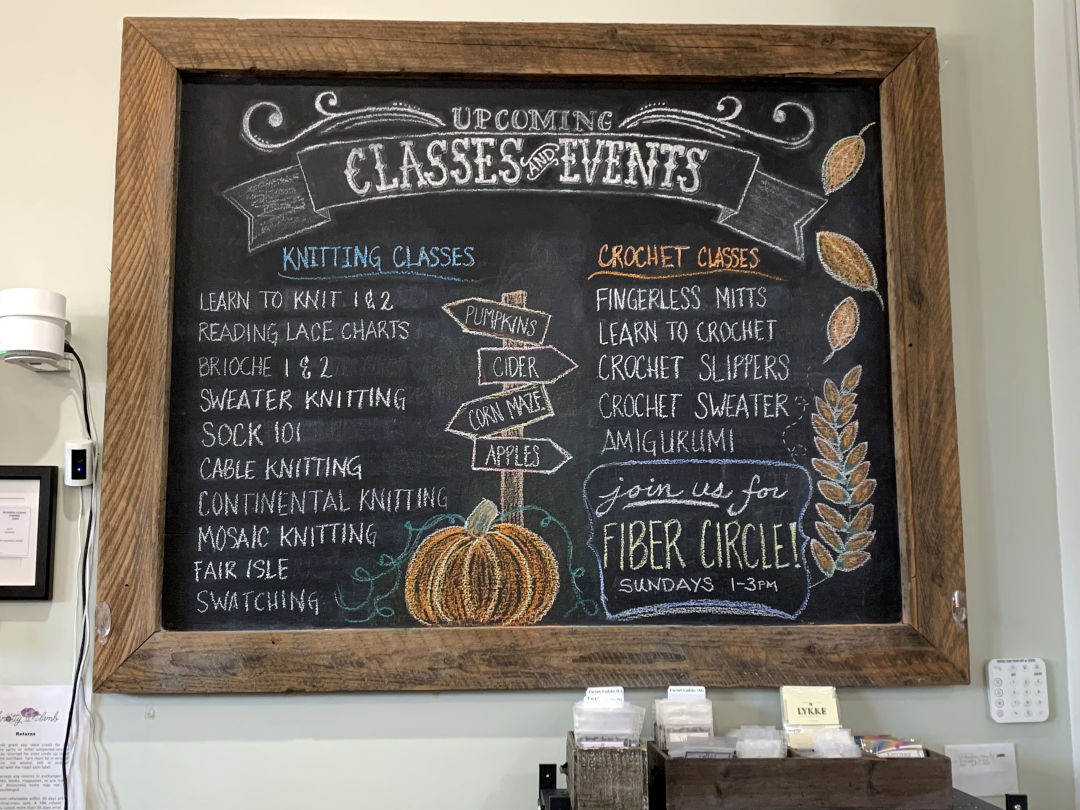 UPCOMING
CLASSES AND EVENTS
KNITTING CLASSES
LEARN TO KNIT 1 & 2
READING LACE CHARTS
BRIOCHE 1 & 2
SWEATER KNITTING
SOCK 101
CABLE KNITTING
CONTINENTAL KNITTING
MOSAIC KNITTING
FAIR ISLE
SWATCHING
PUMPKINS
CIDER
CORN MAZE
APPLES
CROCHET CLASSES
FINGERLESS MITTS
LEARN TO CROCHET
CROCHET SLIPPERS
CROCHET SWEATER
AMIGURUMI
join us for
FIBER CIRCLE!
SUNDAYS 1-3PM
Returns
LYKKE